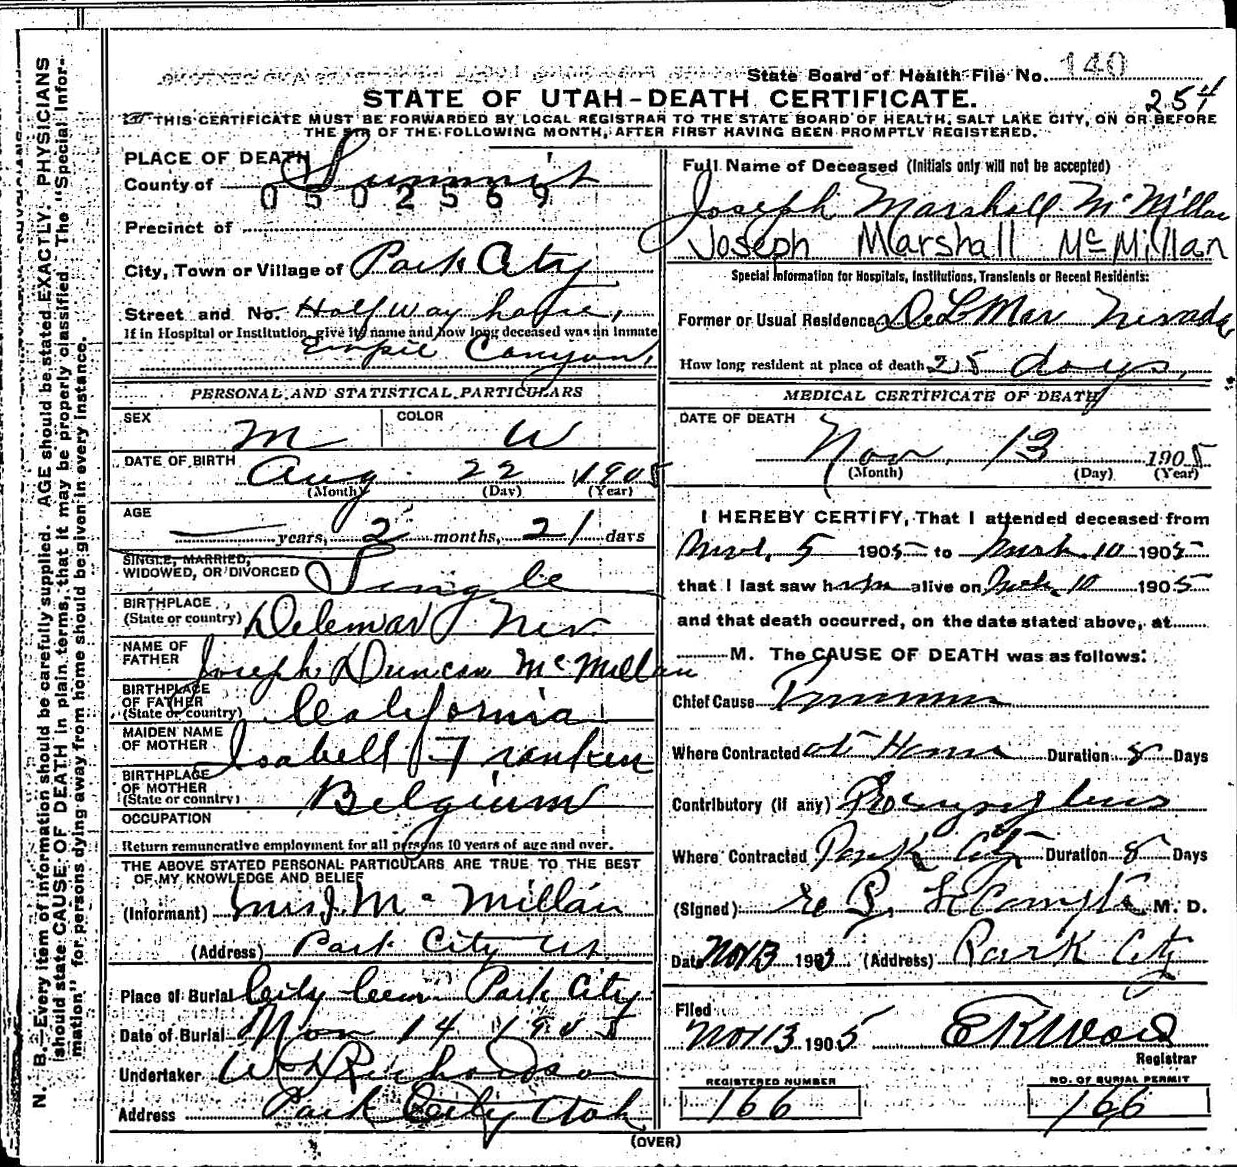 State Board of Health File No. 140
STATE OF UTAH-DEATH CERTIFICATE. 254
THIS CERTIFICATE MUST BE FORWARDED BY LOCAL REGISTRAR TO THE STATE BOARD OF HEALTH, SALT LAKE CITY, ON OR BEFORE
THE 5TH OF THE FOLLOWING MONTH, AFTER FIRST HAVING BEEN PROMPTLY REGISTERED.
N. B.—Every item of information should be carefully supplied. AGE should be stated EXACTLY. PHYSICIANS
should state CAUSE OF DEATH in plain terms, that it may be properly classified. The "Special Infor-
mation" for persons dying away from home should be given in every instance.
PLACE OF DEATH
County of Summit
0502569
Precinct of
City, Town or Village of Park City
Street and No. Half way house,
If in Hospital or Institution, give its name and how long deceased was an inmate
Empie Canyon,
PERSONAL AND STATISTICAL PARTICULARS
SEX M COLOR W
DATE OF BIRTH Aug. 22 1905
(Month) (Day) (Year)
AGE
— years, 2 months, 21 days
SINGLE, MARRIED,
WIDOWED, OR DIVORCED Single
BIRTHPLACE
(State or country) Delemar Nev.
NAME OF
FATHER Joseph Duncan McMillan
BIRTHPLACE
OF FATHER
(State or country) California
MAIDEN NAME
OF MOTHER Isabell Franken
BIRTHPLACE
OF MOTHER
(State or country) Belgium
OCCUPATION
Return remunerative employment for all persons 10 years of age and over.
THE ABOVE STATED PERSONAL PARTICULARS ARE TRUE TO THE BEST
OF MY KNOWLEDGE AND BELIEF
(Informant) Mrs J. McMillan
(Address) Park City Ut.
Place of Burial City Cem. Park City
Date of Burial Nov 14 1905
Undertaker Richardson
Address Park City Utah
Full Name of Deceased (Initials only will not be accepted)
Joseph Marshall McMillan
Joseph Marshall McMillan
Special Information for Hospitals, Institutions, Transients or Recent Residents:
Former or Usual Residence DeLMar Nevada
How long resident at place of death 25 days,
MEDICAL CERTIFICATE OF DEATH
DATE OF DEATH
Nov. 13 1905
(Month) (Day) (Year)
I HEREBY CERTIFY, That I attended deceased from
5 1905 to 10 1905
that I last saw him alive on 10 1905
and that death occurred, on the date stated above, at
M. The CAUSE OF DEATH was as follows:
Chief Cause
Where Contracted at Home Duration 8 Days
Contributory (if any)
Where Contracted Park City Duration 8 Days
(Signed) LeCompte M. D.
Date Nov 13 190 (Address) Park City
Filed
Nov 13 1905 E R Wood
Registrar
REGISTERED NUMBER
166
NO. OF BURIAL PERMIT
166
(OVER)